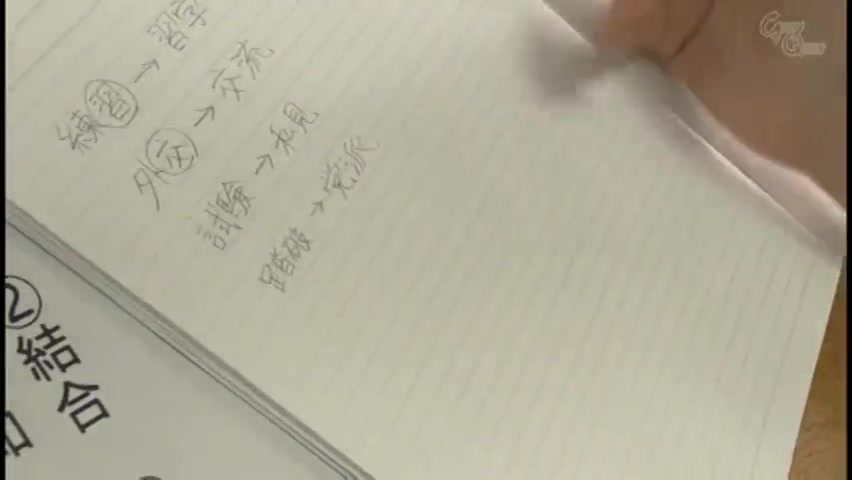 練習→習字
外交→交流
試験→私見
踏破→党派
②
結合